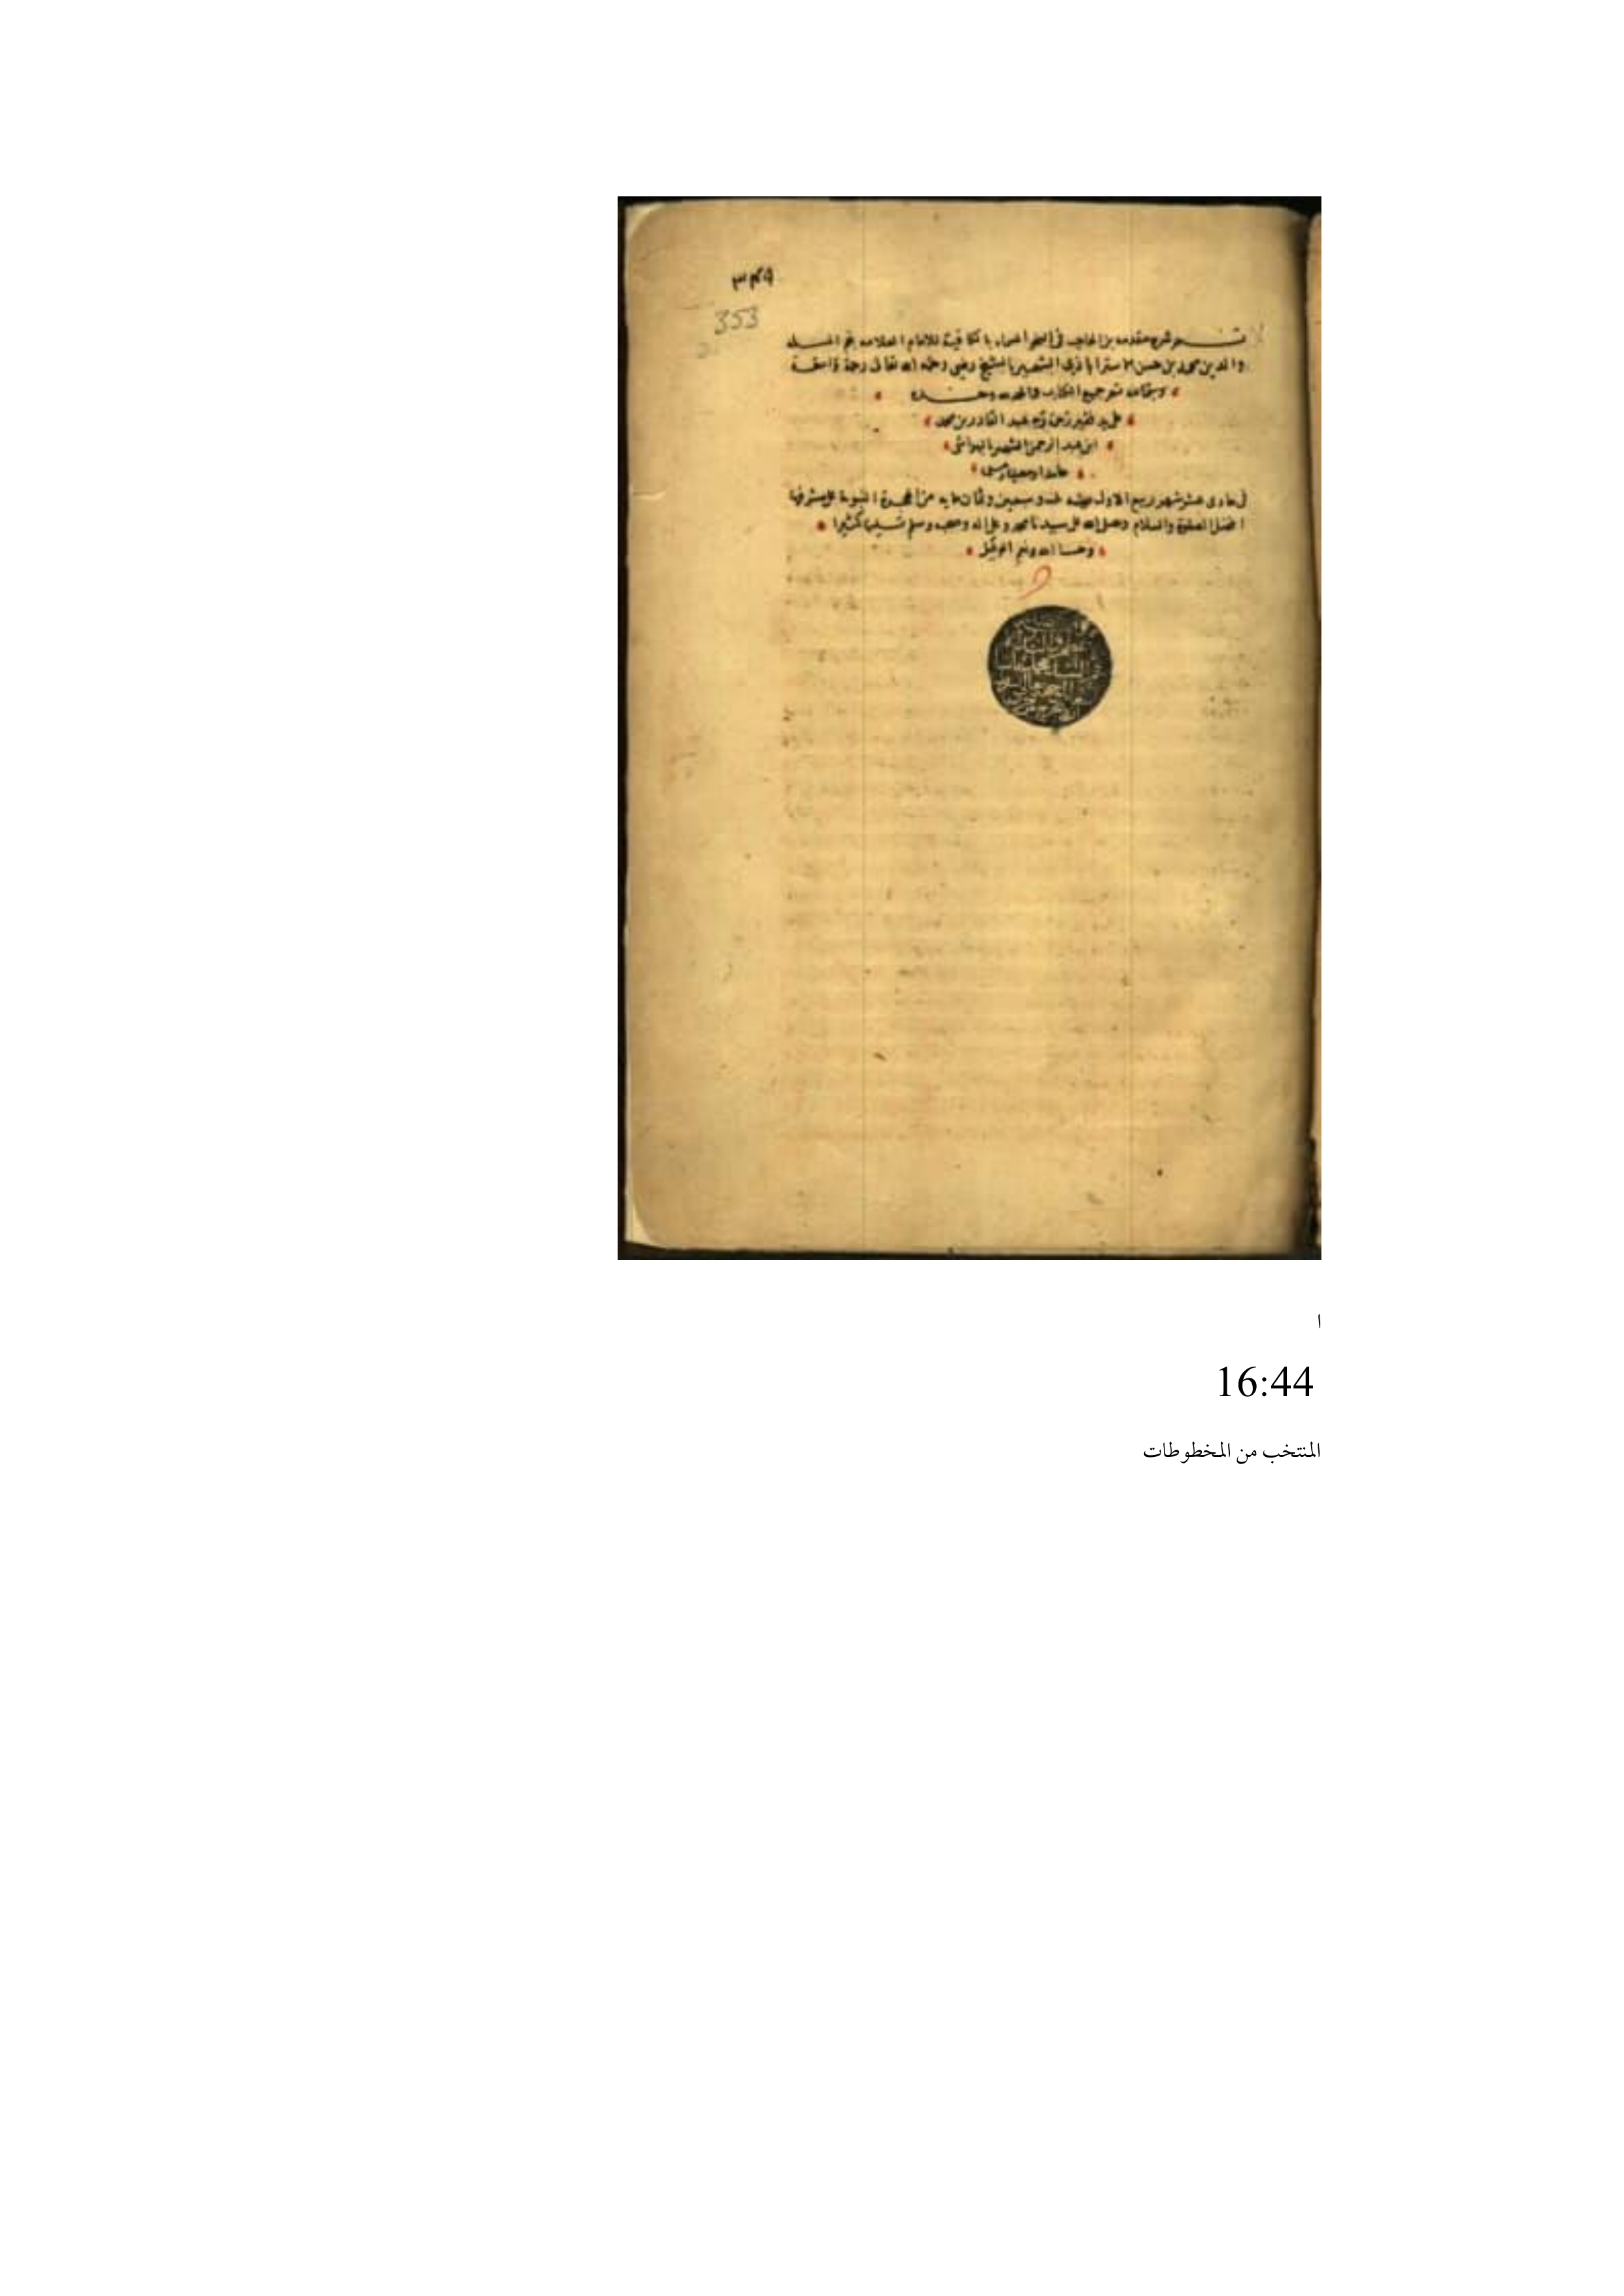 ٣٤٩
353
تم شرح مقدمه بن الحاجب في النحو المسماه بالكافية للامام العلامه نجم المله
والدين محمد بن حسن الاستراباذي الشهير بالشيخ رضي رحمه الله تعالى رحمة واسعة
وبتمامه تم جميع الكتاب والحمد لله وحده
على يد فقير رحمة ربه عبد القادر بن محمد
ابن عبد الرحمن الشهير
حامدا ومصليا
في حادى عشر شهر ربيع الاول سنه وسبعين وثمان مايه من الهجرة النبويه على مشرفها
افضل الصلوة والسلام وصلى الله على سيدنا محمد وعلى اله وصحبه وسلم تسليما كثيرا
وحسبنا الله ونعم الوكيل
ا
16:44
المنتخب من المخطوطات